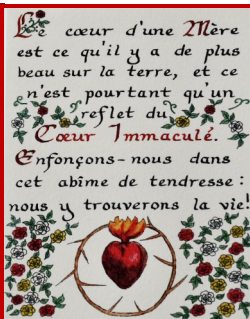 Le cœur d'une Mère
est ce qu'il y a de plus
beau sur la terre, et ce
n'est pourtant qu'un
reflet du
Cœur Immaculé.
Enfonçons-nous dans
cet abîme de tendresse :
nous y trouverons la vie!